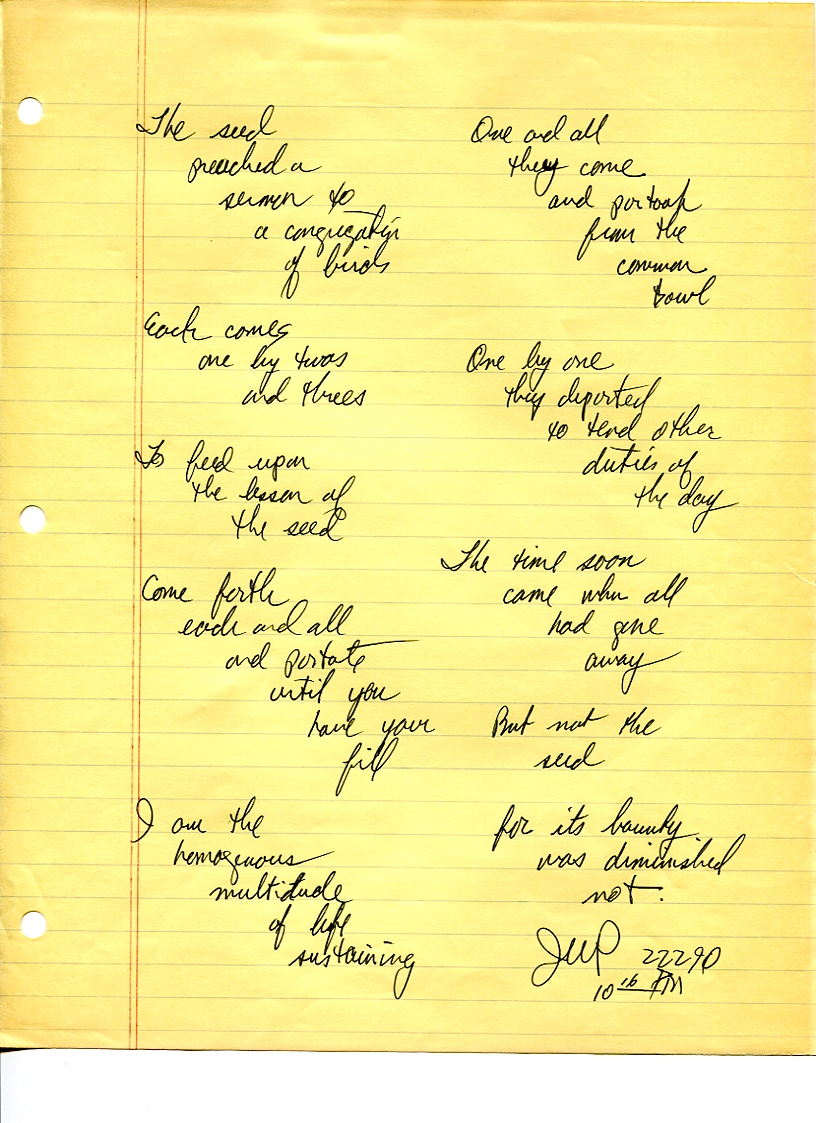 The seed
preached a
sermon to
a congregation
of birds
Each comes
one by twos
and threes
To feed upon
the lesson of
the seed
Come forth
each and all
and partake
until you
have your
fill
I am the
homogenous
multitude
of life
sustaining
One and all
they come
and partook
from the
common
bowl
One by one
they departed
to tend other
duties of
the day
The time soon
came when all
had gone
away
But not the
seed
for its bounty
was diminished
not.
JWP 22290